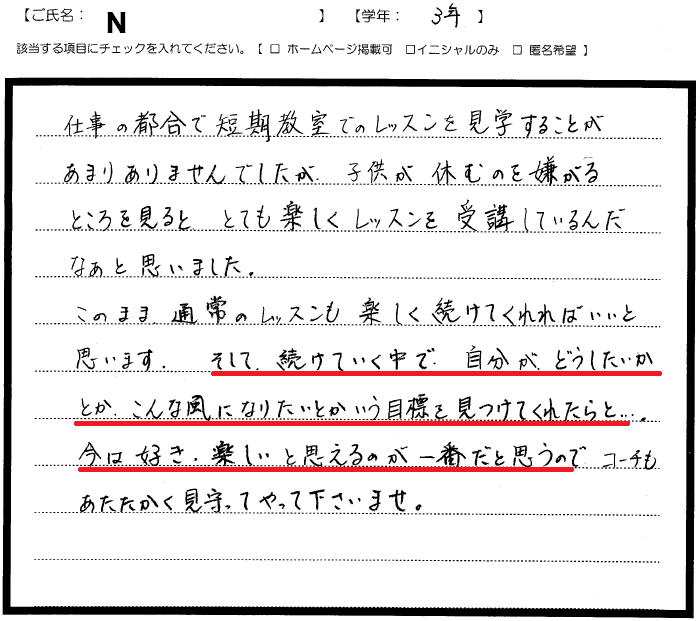 【ご氏名： N 】 【学年： 3年 】
該当する項目にチェックを入れてください。【 □ ホームページ掲載可 □イニシャルのみ □ 匿名希望 】
仕事の都合で短期教室でのレッスンを見学することが
あまりありませんでしたが、子供が休むのを嫌がる
ところを見ると とても楽しくレッスンを受講しているんだ
なぁと思いました。
このまま通常のレッスンも楽しく続けてくれればいいと
思います。 そして、続けていく中で、自分が、どうしたいか
とか、こんな風になりたいとかいう目標を見つけてくれたらと…。
今は好き・楽しいと思えるのが一番だと思うので コーチも
あたたかく見守ってやって下さいませ。